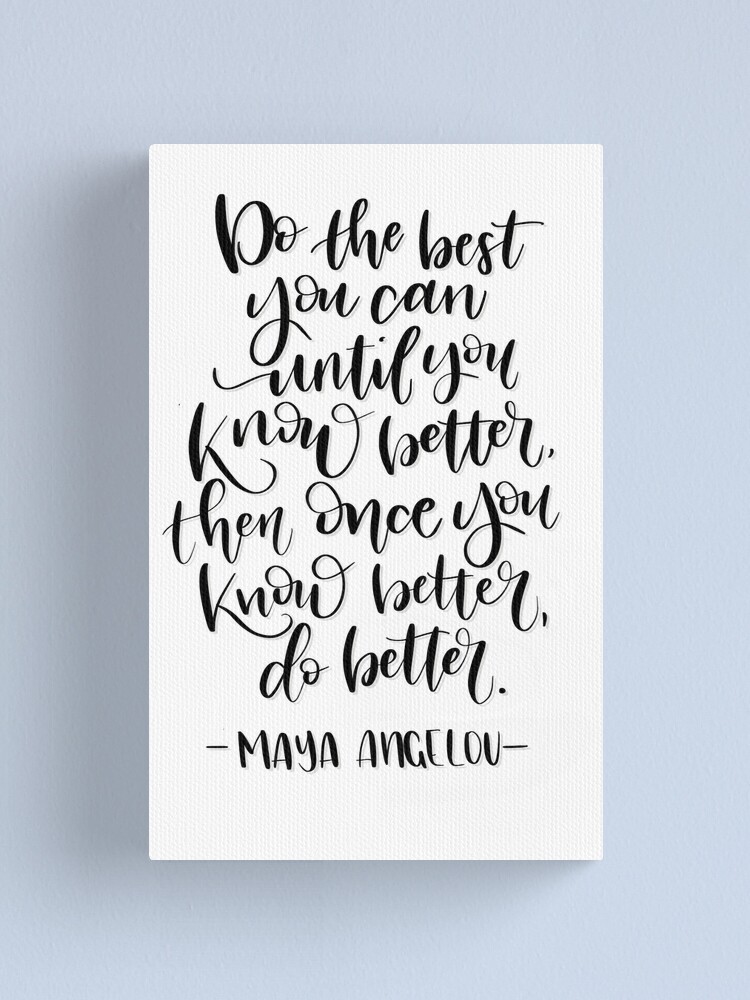 Do the best
you can
until you
know better,
then once you
know better,
do better.
-MAYA ANGELOU-